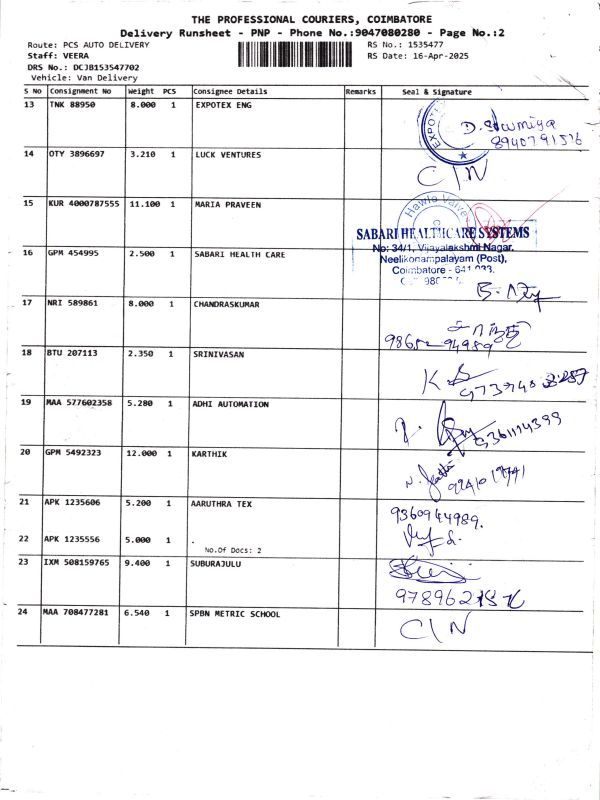 THE PROFESSIONAL COURIERS, COIMBATORE
Delivery Runsheet - PNP - Phone No.:9047080280 - Page No.:2
Route: PCS AUTO DELIVERY RS No.: 1535477
Staff: VEERA RS Date: 16-Apr-2025
DRS No.: DCJB153547702
Vehicle: Van Delivery
S No Consignment No Weight PCS Consignee Details Remarks Seal & Signature
13 TNK 88950 8.000 1 EXPOTEX ENG
EXPOT
D. Sowmiya
8940791516
14 OTY 3896697 3.210 1 LUCK VENTURES
C/N
15 KUR 4000787555 11.100 1 MARIA PRAVEEN
Hawle Valves
SABARI HEALTHCARE SYSTEMS
No: 34/1, Vijayalakshmi Nagar,
16 GPM 454995 2.500 1 SABARI HEALTH CARE
Neelikonampalayam (Post),
Coimbatore - 641 033.
17 NRI 589861 8.000 1 CHANDRASKUMAR
94989
18 BTU 207113 2.350 1 SRINIVASAN
19 MAA 577602358 5.280 1 ADHI AUTOMATION
9361114399
20 GPM 5492323 12.000 1 KARTHIK
21 APK 1235606 5.200 1 AARUTHRA TEX
9360944989.
22 APK 1235556 5.000 1 .
No.Of Docs: 2
23 IXM 508159765 9.400 1 SUBURAJULU
24 MAA 708477281 6.540 1 SPBN METRIC SCHOOL
C/N